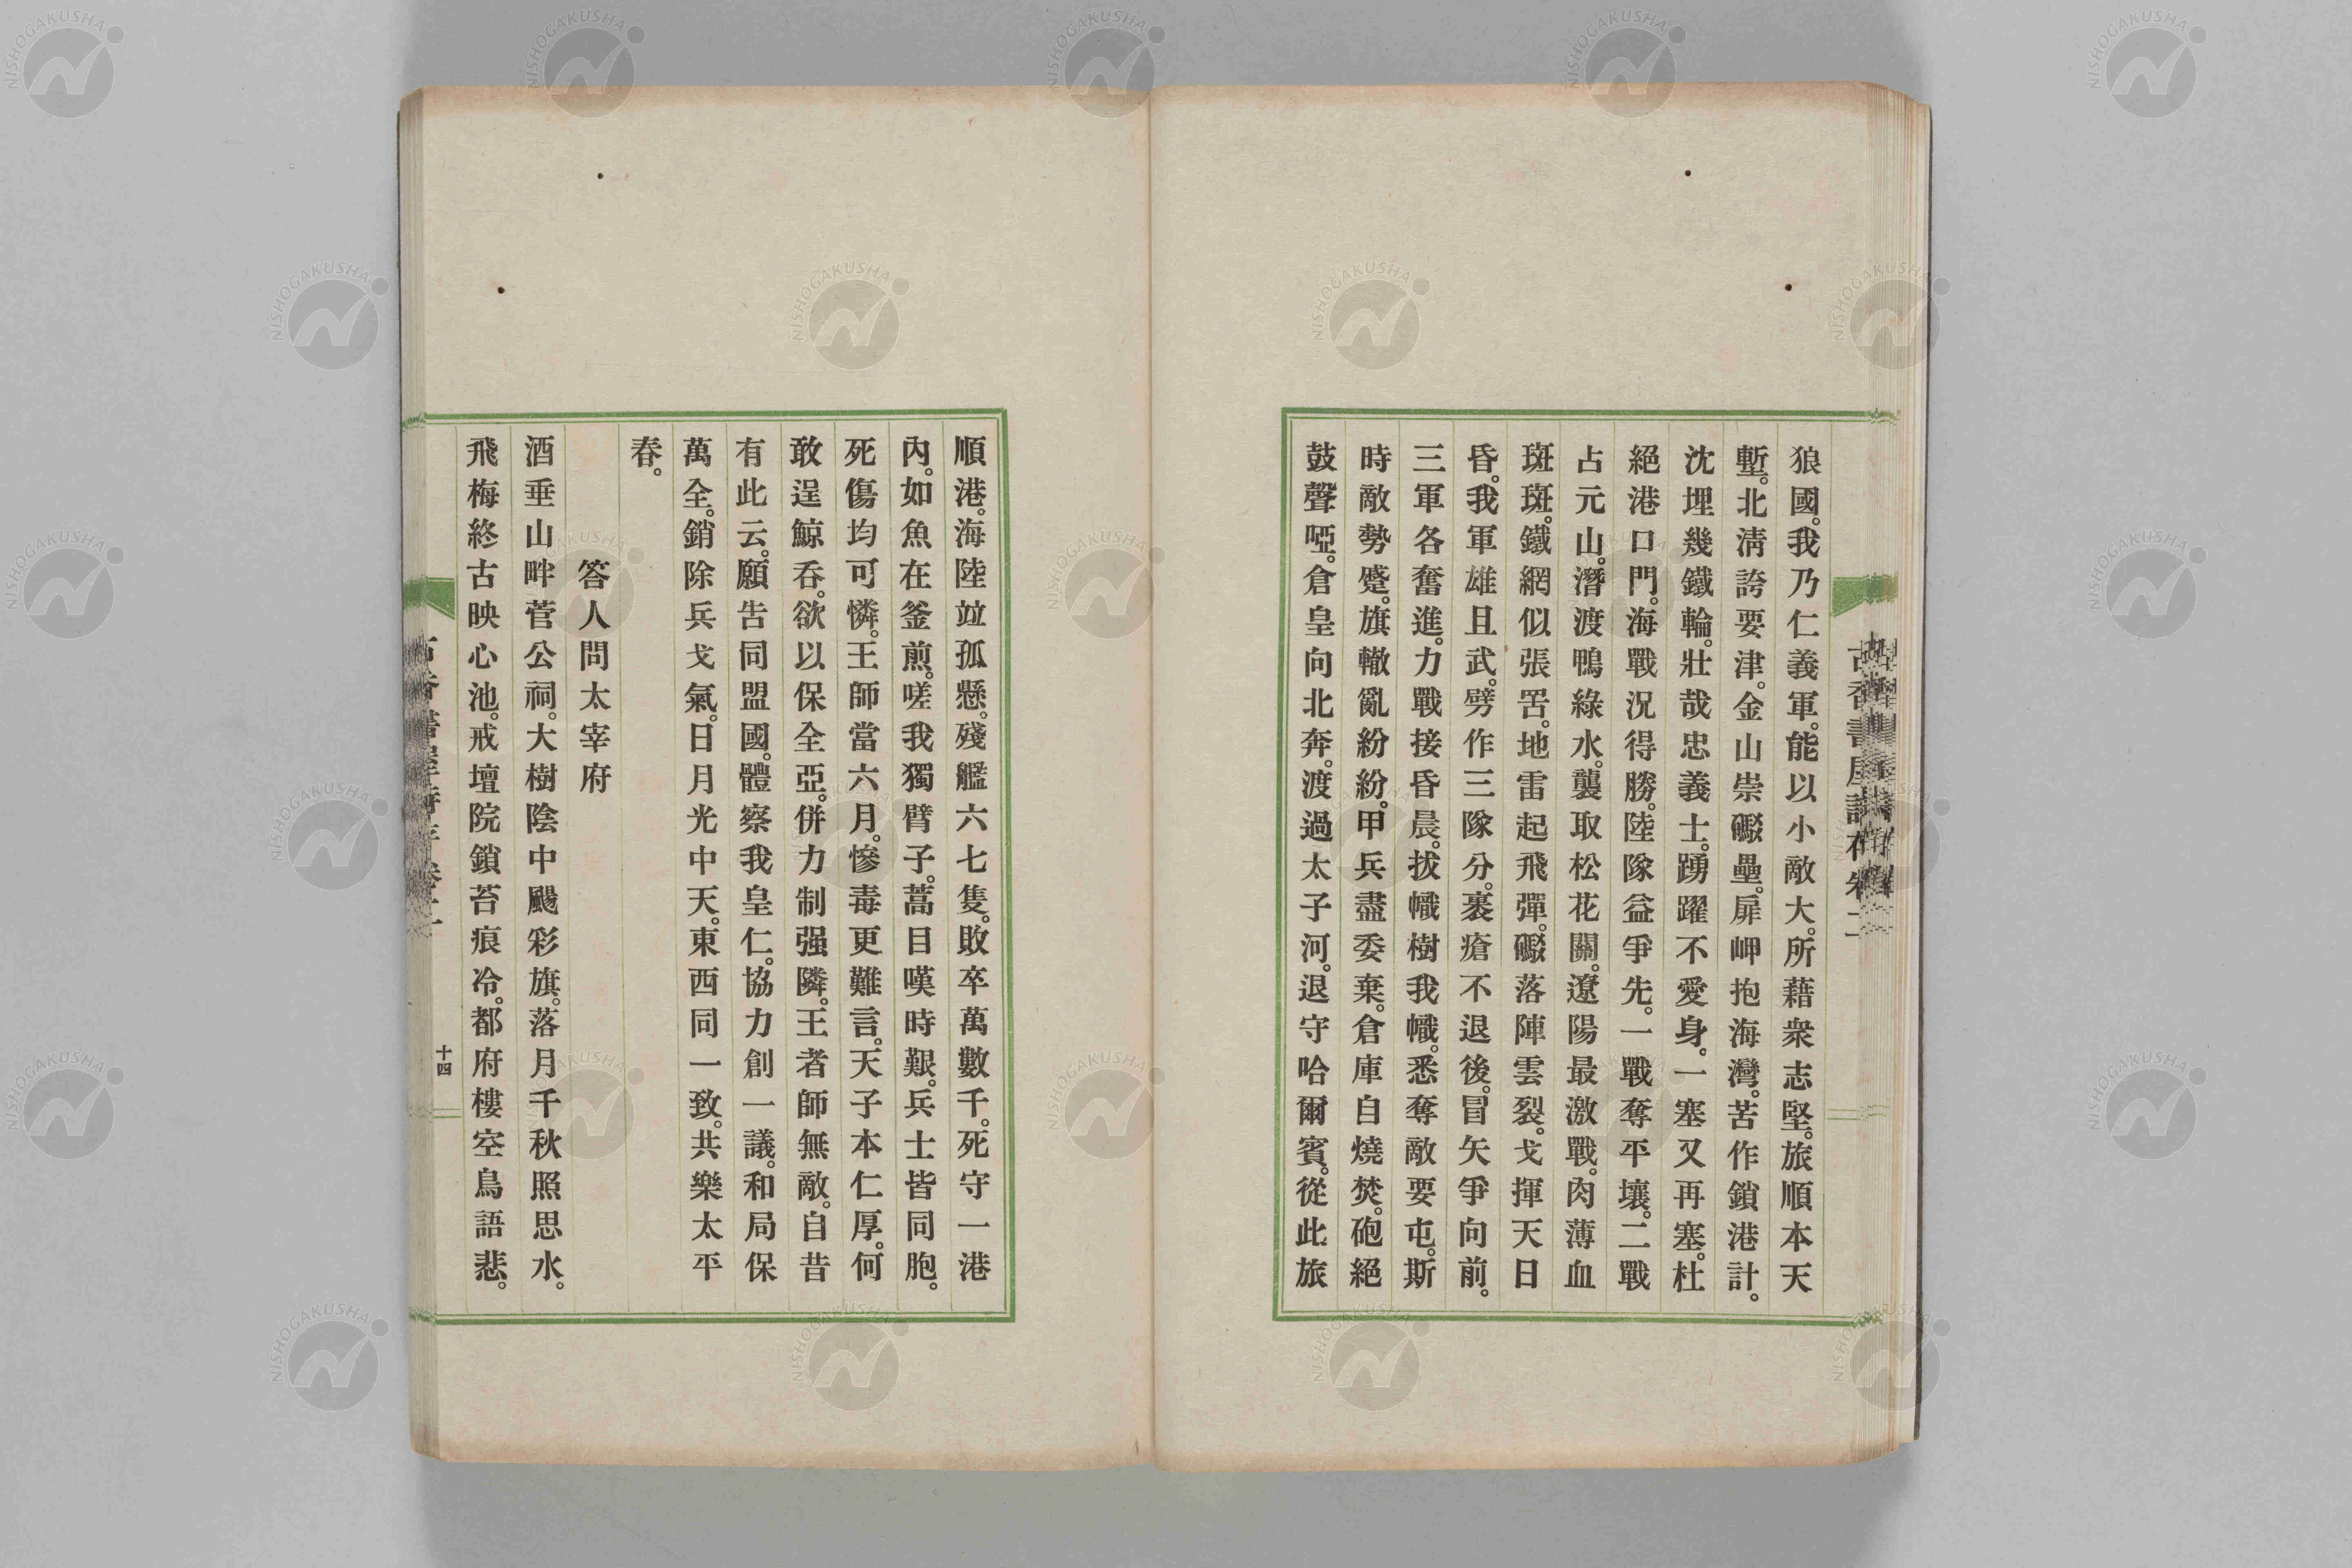 狼國。我乃仁義軍。能以小敵大。所藉衆志堅。旅順本天
塹。北淸誇要津。金山崇礮壘。扉岬抱海灣。苦作鎖港計。
沈埋幾鐵輪。壯哉忠義士。踴躍不愛身。一塞又再塞。杜
絕港口門。海戰況得勝。陸隊益爭先。一戰奪平壤。二戰
占元山。潛渡鴨綠水。襲取松花關。遼陽最激戰。肉薄血
斑斑。鐵網似張罟。地雷起飛彈。礮落陣雲裂。戈揮天日
昏。我軍雄且武。劈作三隊分。裹瘡不退後。冒矢爭向前。
三軍各奮進。力戰接昏晨。拔幟樹我幟。悉奪敵要屯。斯
時敵勢蹙。旗轍亂紛紛。甲兵盡委棄。倉庫自燒焚。砲絕
鼓聲啞。倉皇向北奔。渡過太子河。退守哈爾賓。從此旅
順港。海陸竝孤懸。殘艦六七隻。敗卒萬數千。死守一港
內。如魚在釜煎。嗟我獨臂子。蒿目嘆時艱。兵士皆同胞。
死傷均可憐。王師當六月。慘毒更難言。天子本仁厚。何
敢逞鯨呑。欲以保全亞。併力制强隣。王者師無敵。自昔
有此云。願告同盟國。體察我皇仁。協力創一議。和局保
萬全。銷除兵戈氣。日月光中天。東西同一致。共樂太平
春。
答人問太宰府
酒垂山畔菅公祠。大樹陰中颺彩旗。落月千秋照思水。
飛梅終古映心池。戒壇院鎖苔痕冷。都府樓空鳥語悲。
十四
NISHOGAKUSHA